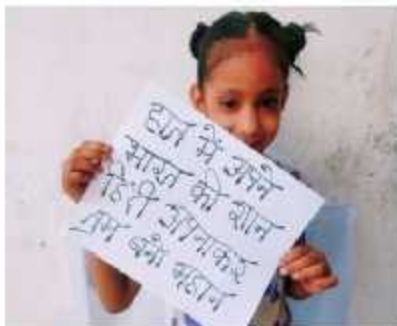 हाल में अपने
भारत की शान
हिंदी अपनाकर
तुम बनो महान